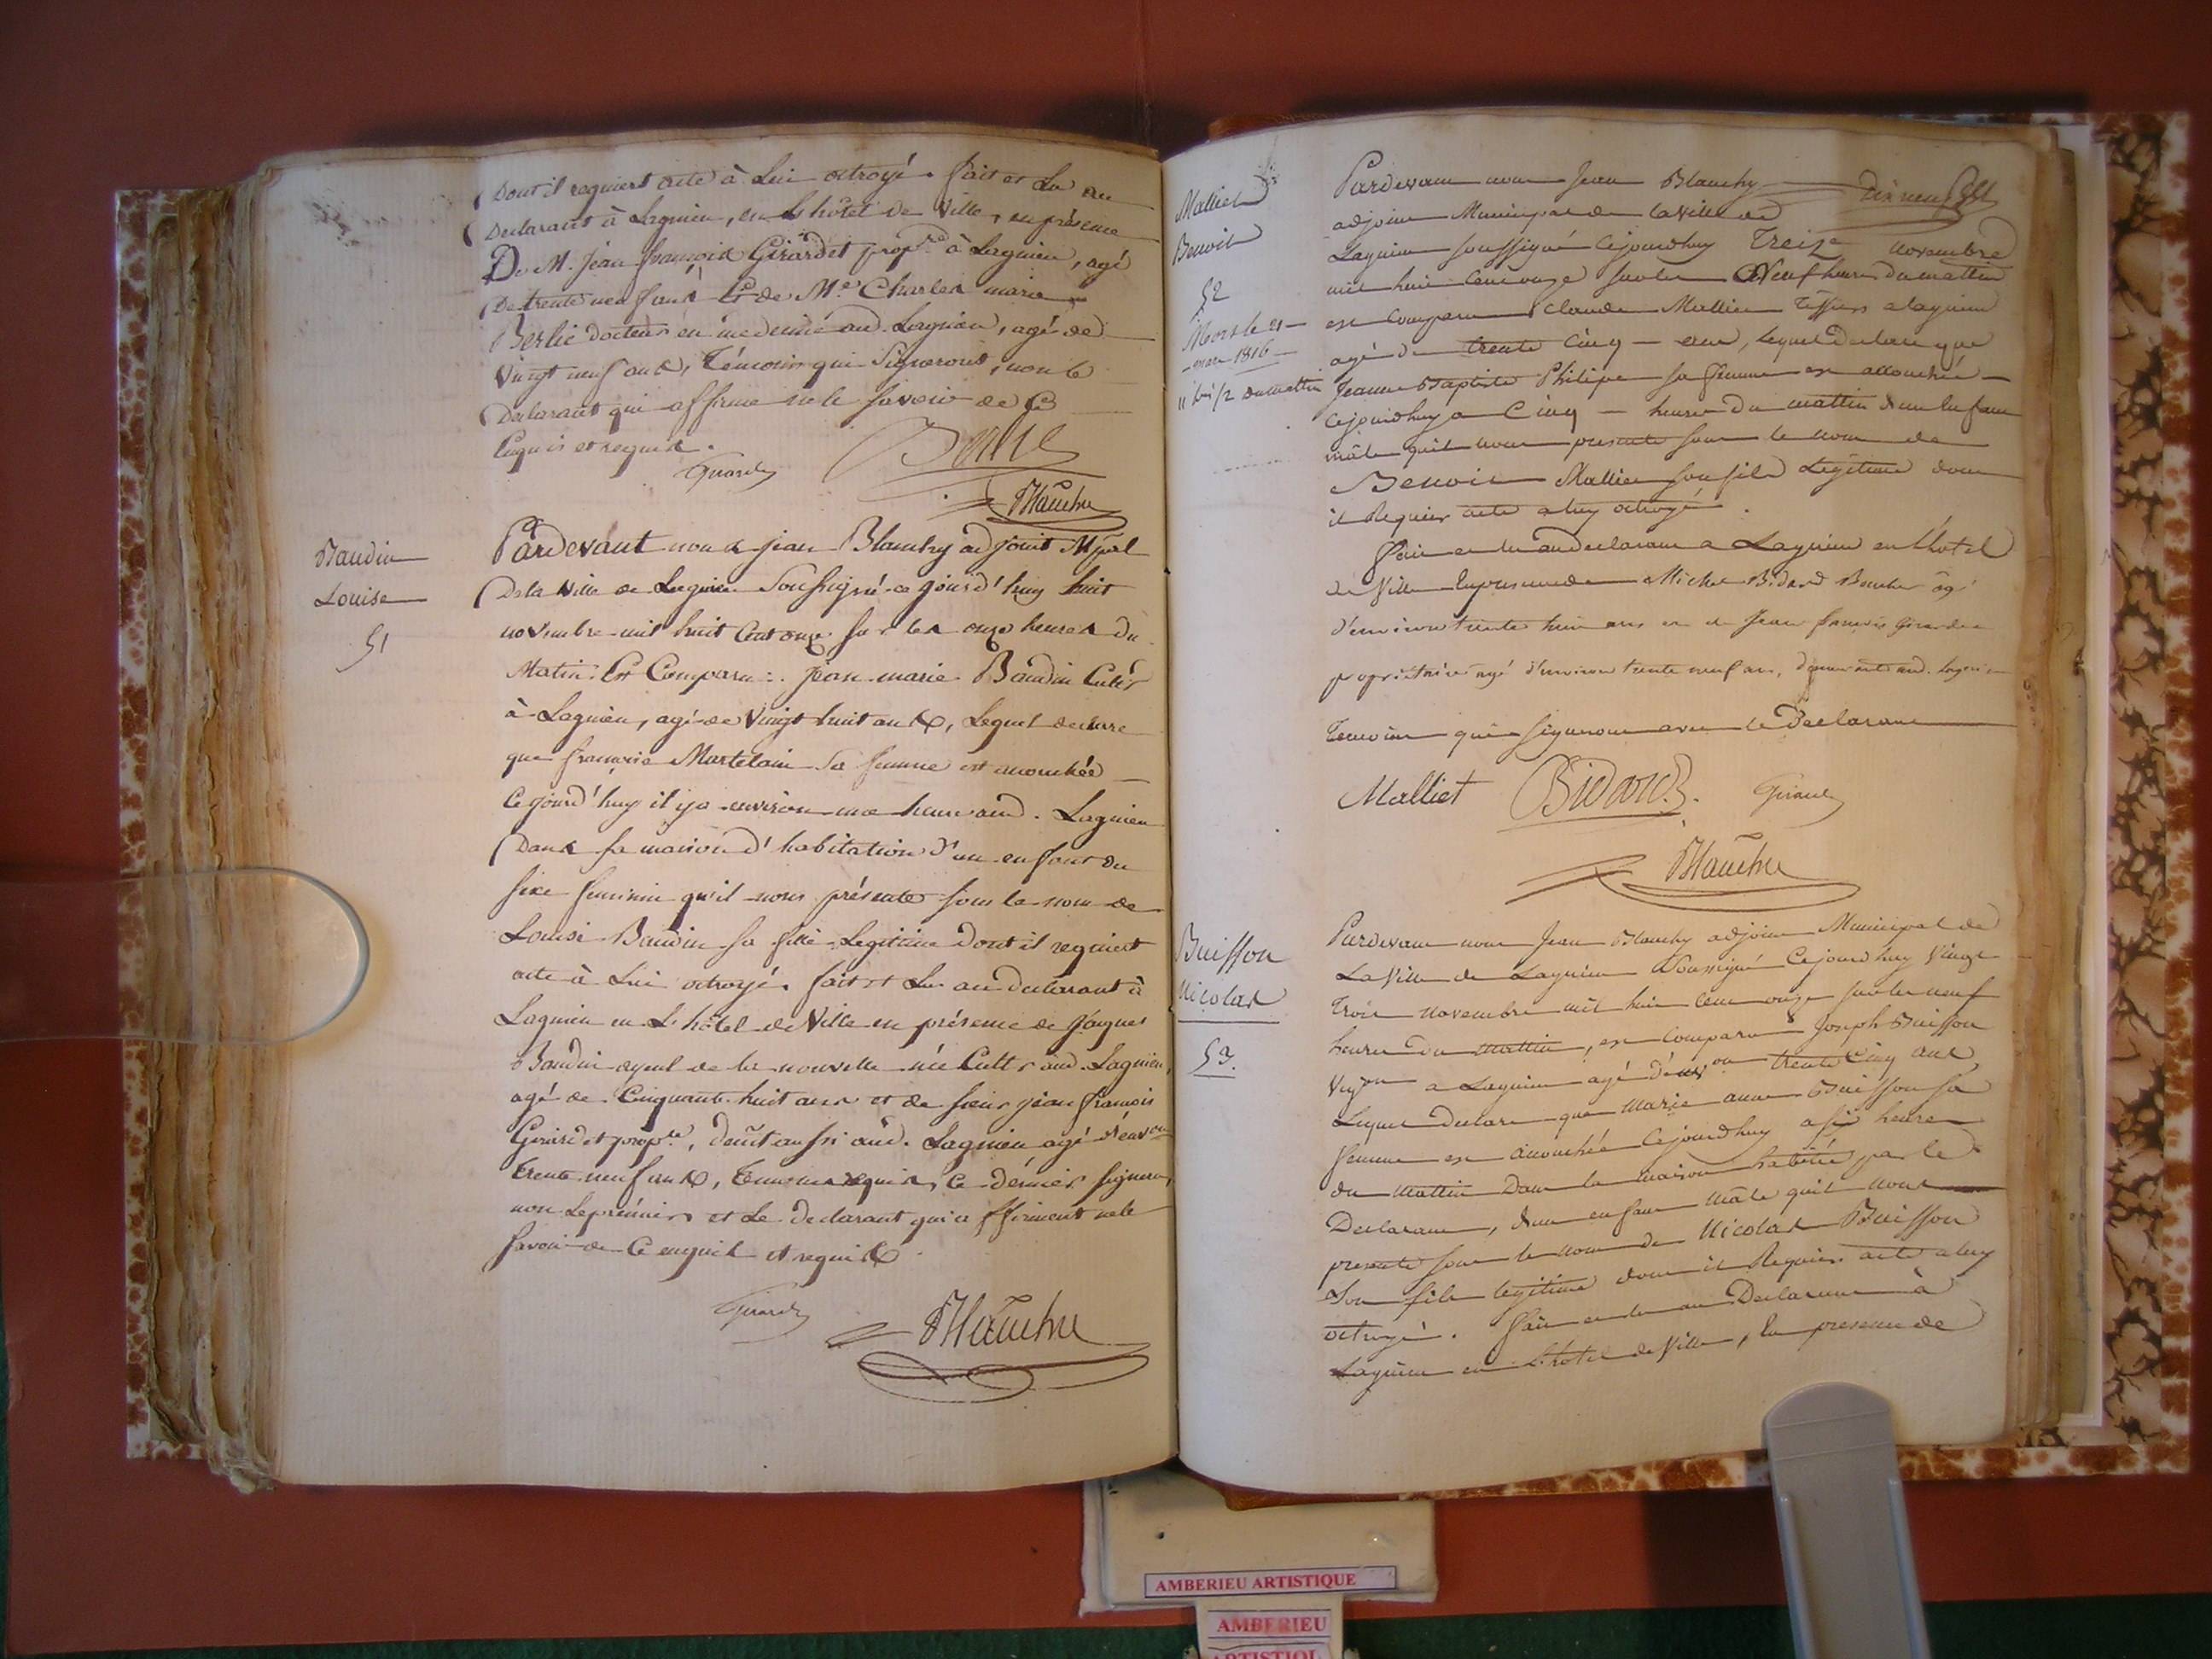 Dont il requiert acte à Lui octroyé. fait et Lu au
Declarant à Lagnieu, en L'hôtel de Ville, en présence
De M. Jean françois Girardet prop.re à Lagnieu, agé
De trente neuf ans & de M.e Charles marie
Berlie docteur en medecine aud. Lagnieu, agé de
Vingt neuf ans, Témoins qui Signeront, non le
Declarant qui affirme ne le savoir de ce
Enquis et requis.
Girardet
Blanchy
Baudin
Louise
51
Pardevant nous Jean Blanchy adjoint Mpal
De la Ville de Lagnieu Soussigné ce jourd'huy huit
novembre mil huit Cent onze sur les onze heures du
Matin: Est Comparu: Jean-marie Baudin Cult.r
à Lagnieu, agé de Vingt huit ans, Lequel declare
que françoise Martelain Sa femme est accouchée
Ce jourd'huy il y a environ une heure aud. Lagnieu
Dans sa maison d'habitation d'un enfant du
sexe feminin qu'il nous présente sous le nom de
Louise Baudin sa fille Legitime dont il requiert
acte à Lui octroyé. fait et Lu au declarant à
Lagnieu en L'hôtel de Ville en présence de Jaques
Baudin ayeul de la nouvelle née Cult.r aud. Lagnieu,
agé de Cinquante huit ans et de sieur Jean françois
Girardet prop.re, deûrt aussi aud. Lagnieu agé d'env.on
trente neuf ans, temoins requis, ce dernier signera,
non Le premier et Le declarant qui affirment ne le
savoir de Ce enquis et requis
Girardet
Blanchy
dix neuf
Malliet
Benoit
52
Mort le 21
mars 1816
11 h 1/2 du mattin
Pardevant nous Jean Blanchy
adjoint Municipal de la Ville de
Lagnieu soussigné Cejourdhuy Treize novembre
mil huit Cent onze sur les Neuf heures du mattin
est comparu Claude Malliet Tissier a Lagnieu
agé de trente Cinq ans, lequel declare que
Jeanne Baptiste Philipe sa femme est accouchée
Cejourdhuy a Cinq heures du mattin d'un Enfant
mâle quil nous presente sous le nom de
Benoit Malliet son fils Legitime dont
il Requier acte a luy octroyé.
Fait et lu au declarant a Lagnieu en L'hotel
de Ville En presence de Michel Bidard Boucher âgé
d'environ trente huit ans et de Jean françois Girardet
propriétaire agé d'environ trente neuf ans, demeurants aud. Lagnieu
Temoins qui signeront avec le Declarant
Malliet Bidard Girardet
Blanchy
Buisson
Nicolas
53.
Pardevant nous Jean Blanchy adjoint Municipal de
La Ville de Lagnieu Soussigné Cejourdhuy Vingt
Trois novembre mil huit Cent onze sur les neuf
heures du mattin, est comparu Joseph Buisson
Vig.on a Lagnieu agé d'env.on trente Cinq ans
Lequel Declare que Marie anne Buisson sa
femme est accouchée Cejourdhuy a six heures
du mattin Dans la maison habitée par le
Declarant, d'un enfant mâle quil nous
presente sous le nom de Nicolas Buisson
Son fils legitime dont il Requier acte a luy
octroyé. Fait et lu au Declarant à
Lagnieu en L'hotel de Ville, En presence de
AMBERIEU ARTISTIQUE
AMBERIEU